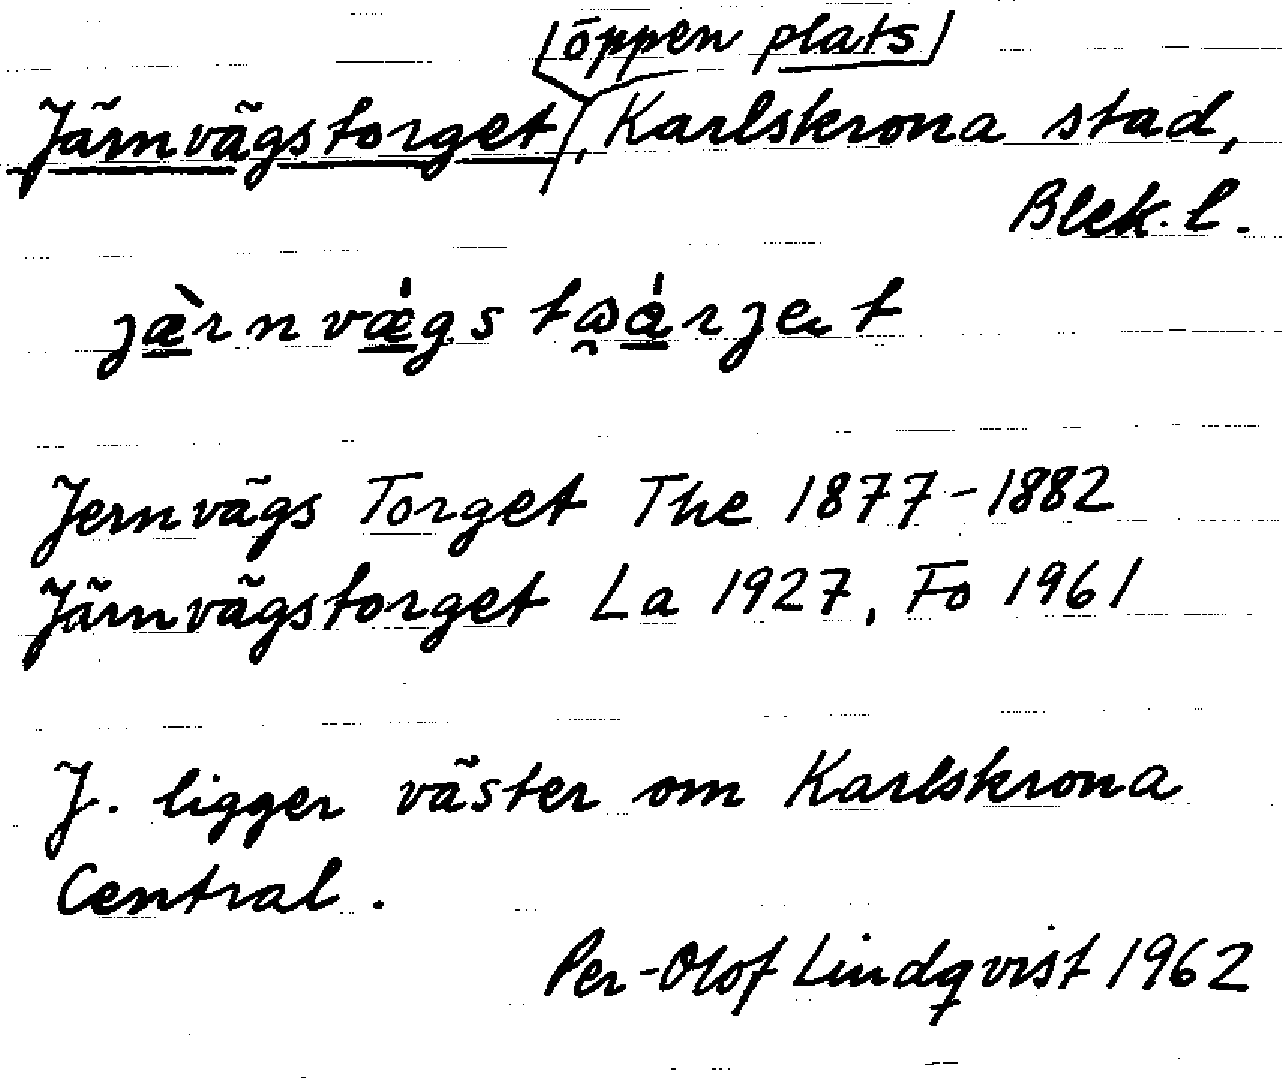 öppen plats
Järnvägstorget, Karlskrona stad,
Blek. l.
Jernvägs Torget The 1877-1882
Järnvägstorget La 1927, Fo 1961
J. ligger väster om Karlskrona
Central.
Per-Olof Lindqvist 1962